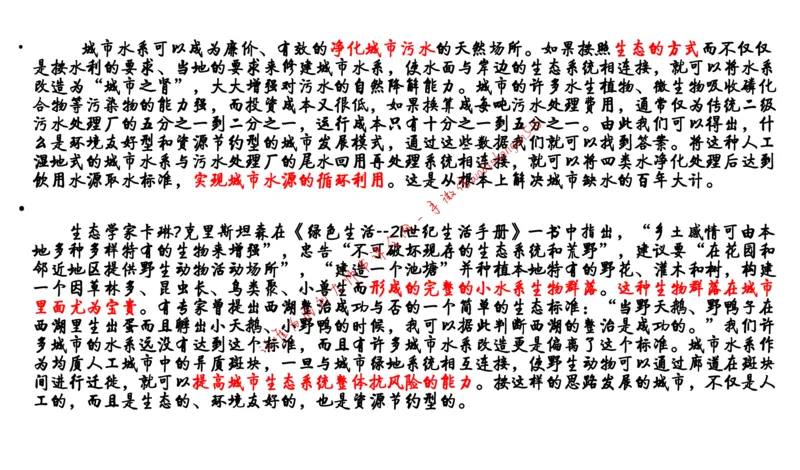 • 城市水系可以成为廉价、有效的净化城市污水的天然场所。如果按照生态的方式而不仅仅
是按水利的要求、当地的要求来修建城市水系，使水面与岸边的生态系统相连接，就可以将水系
改造为“城市之肾”，大大增强对污水的自然降解能力。城市的许多水生植物、微生物吸收磷化
合物等污染物的能力强，而投资成本又很低，如果换算成每吨污水处理费用，通常仅为传统二级
污水处理厂的五分之一到二分之一，运行成本只有十分之一到五分之一。由此我们可以得出，什
么是环境友好型和资源节约型的城市发展模式，通过这些数据我们就可以找到答案。将这种人工
湿地式的城市水系与污水处理厂的尾水回用再处理系统相连接，就可以将四类水净化处理后达到
饮用水源取水标准，实现城市水源的循环利用。这是从根本上解决城市缺水的百年大计。
•
生态学家卡琳?克里斯坦森在《绿色生活--21世纪生活手册》一书中指出，“乡土感情可由本
地多种多样特有的生物来增强”，忠告“不可破坏现存的生态系统和荒野”，建议要“在花园和
邻近地区提供野生动物活动场所”，“建造一个池塘”并种植本地特有的野花、灌木和树，构建
一个因草林多、昆虫长、鸟类聚、小兽生而形成的完整的小水系生物群落。这种生物群落在城市
里面尤为宝贵。有专家曾提出西湖整治成功与否的一个简单的生态标准：“当野天鹅、野鸭子在
西湖里生出蛋而且孵出小天鹅、小野鸭的时候，我可以据此判断西湖的整治是成功的。”我们许
多城市的水系远没有达到这个标准，而且有许多城市水系改造更是偏离了这个标准。城市水系作
为均质人工城市中的异质斑块，一旦与城市绿地系统相互连接，使野生动物可以通过廊道在斑块
间进行迁徙，就可以提高城市生态系统整体抗风险的能力。按这样的思路发展的城市，不仅是人
工的，而且是生态的、环境友好的，也是资源节约型的。